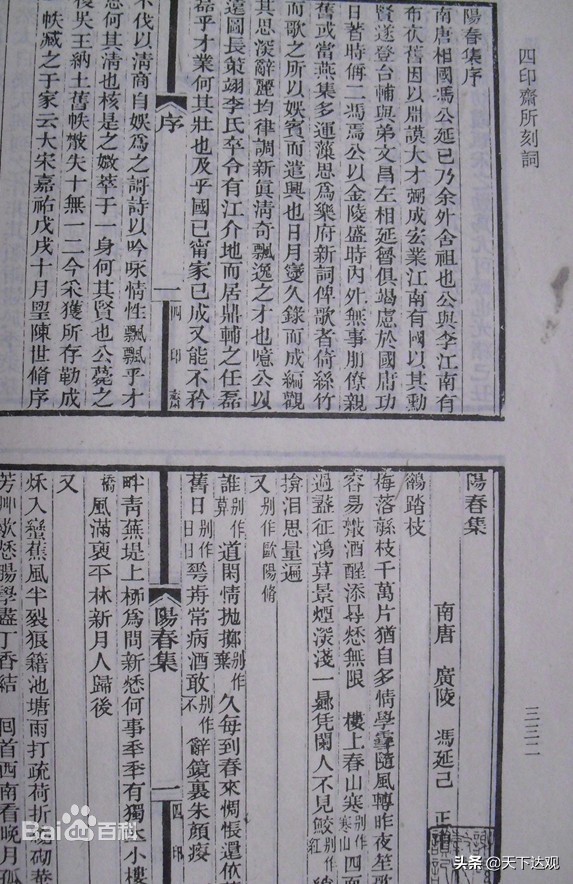 四印齋所刻詞
三三二
陽春集序
南唐相國馮公延巳乃余外舍祖也公與李江南有
布衣舊因以淵謨大才弼成宏業江南有國以其勳
賢遂登台輔與弟文昌左相延魯俱竭慮於國庸功
日著時僃二馮焉公以金陵盛時內外無事朋僚親
舊或當燕集多運藻思為樂府新詞俾歌者倚絲竹
而歌之所以娛賓而遣興也日月寖久錄而成編觀
其思深辭麗均律調新眞清奇飄逸之才也噫公以
遠圖長策翊李氏卒令有江介地而居鼎輔之任磊
磊乎才業何其壯也及乎國已甯家已成又能不矜
序 一 四印齋
不伐以清商自娛為之謌詩以吟咏情性飄飄乎才
思何其清也核是之媺萃于一身何其賢也公薨之
後吳王納土舊帙散失十無一二今采獲所存勒成
一帙臧之于家云大宋嘉祐戊戌十月朢陳世脩序
陽春集
南唐 廣陵 馮延己 正
鵲踏枝
梅落緐枝千萬片猶自多情學雪隨風轉昨夜笙歌
容易散酒醒添得愁無限 樓上春山寒別作寒山四面
過盡征鴻暮景煙深淺一晌凭闌人不見鮫別作紅綃
掩淚思量遍
又別作歐陽脩
誰別作算道閒情拋擲別作棄久每到春來惆悵還依
舊日別作日日花前常病酒敢別作不辭鏡裏朱顏瘦
陽春集 一 四印
畔青蕪堤上桺為問新愁何事年年有獨立小樓
橋風滿裏平林新月人歸後
又
秋入蠻蕉風半裂狼籍池塘雨打疏荷折繞砌蛩
芳艸愁腸學盡丁香結 回首西南看晚月孤
Bai百科
头条 @天下达观